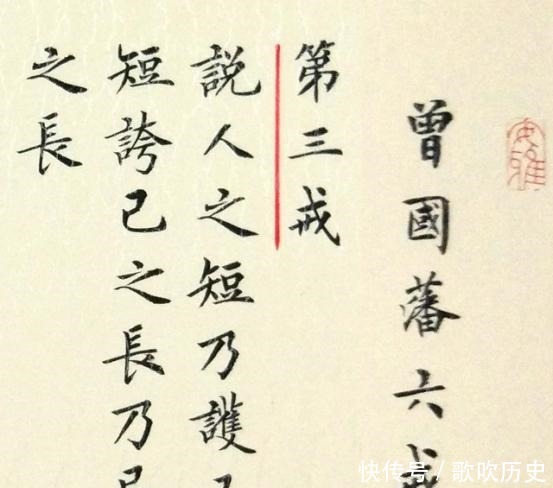 曾國藩六
第三戒
説人之短乃護
短誇己之長乃
之長
快传号 / 歌吹历史